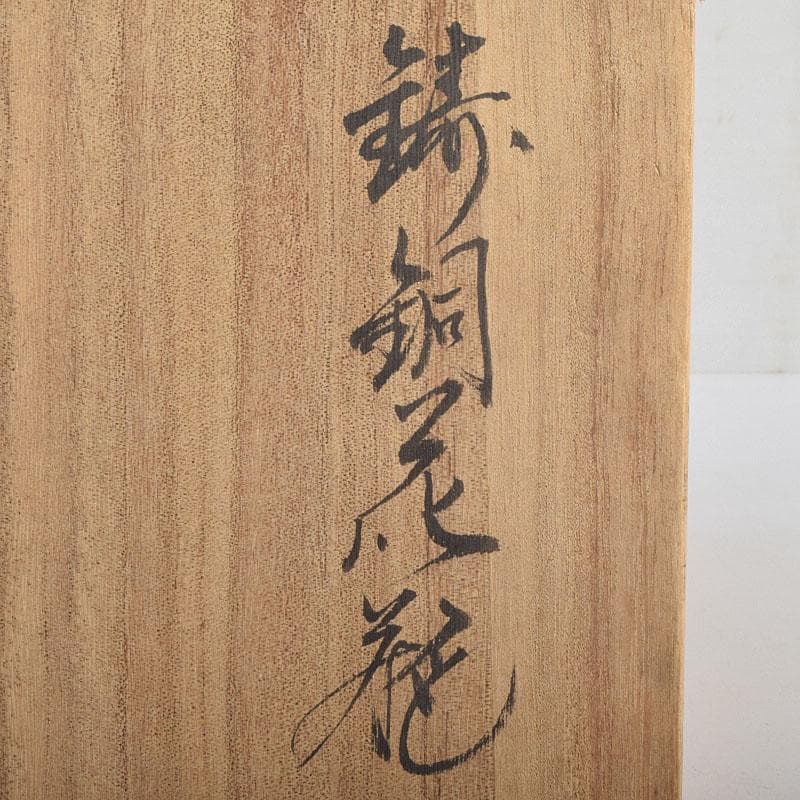 鋳銅花瓶